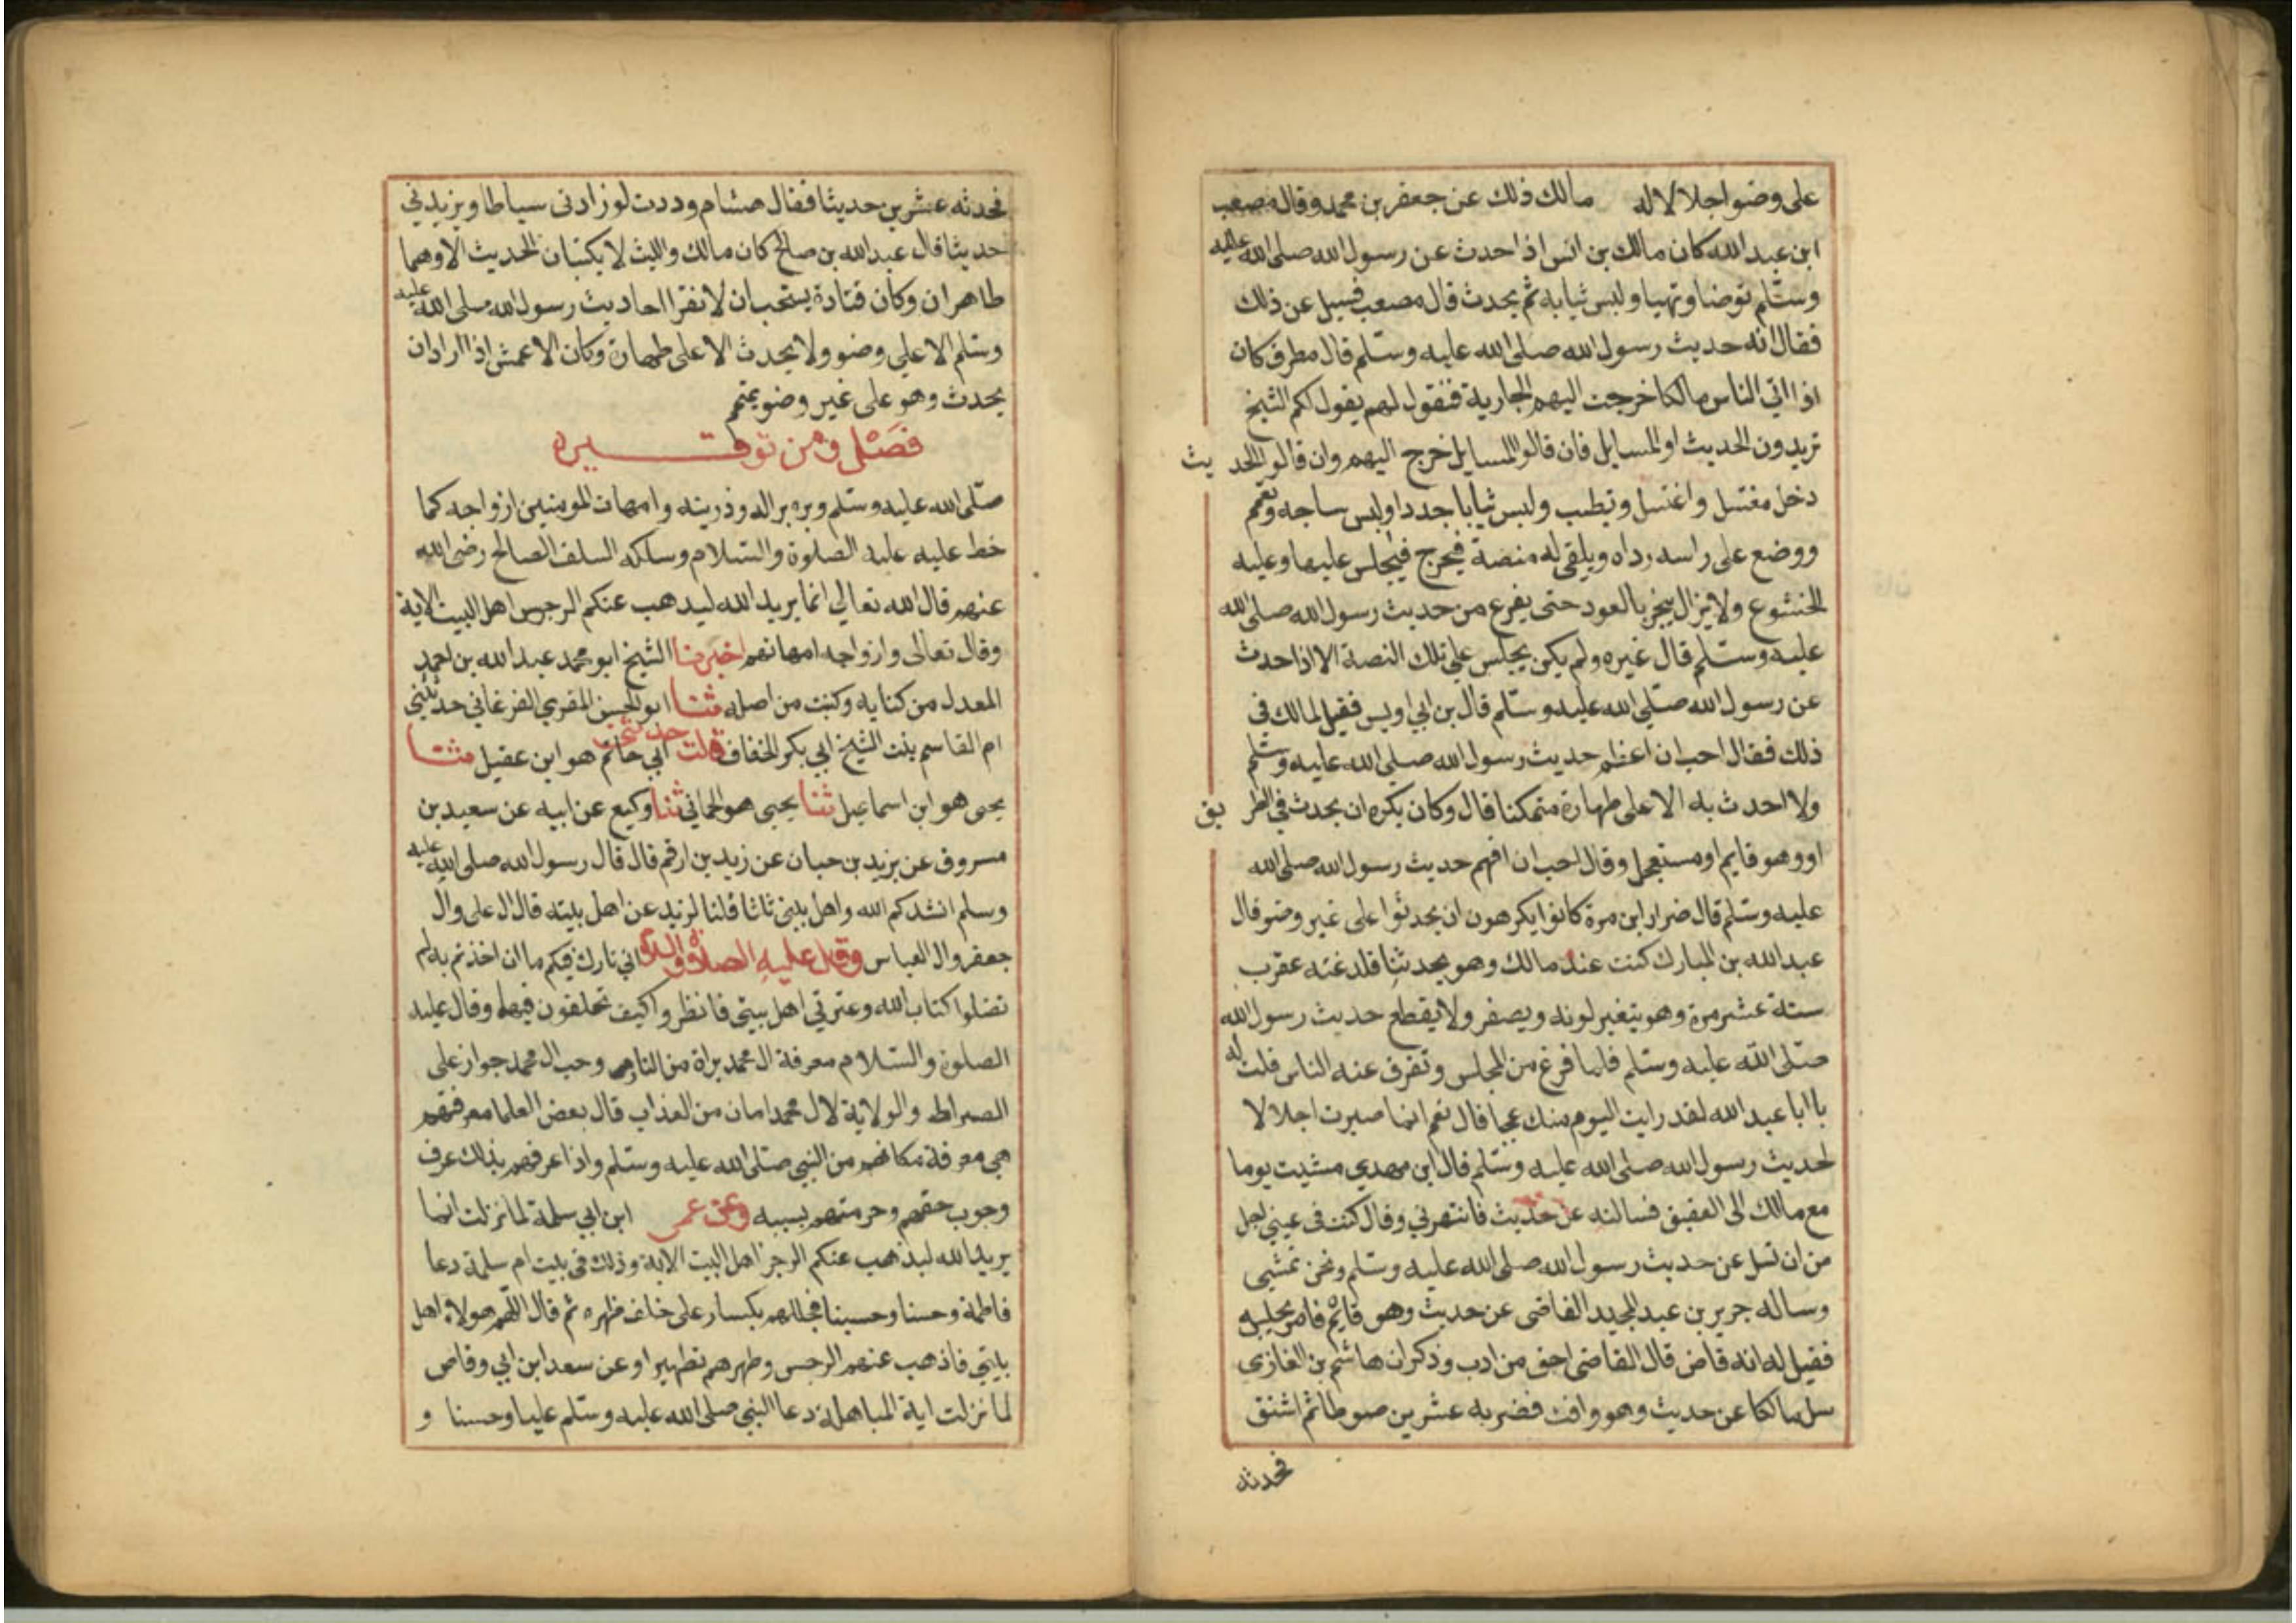 على وضو اجلالا له مالك ذلك عن جعفر بن محمد وقال مصعب
ابن عبد الله كان مالك بن انس اذا حدث عن رسول الله صلى الله عليه
وسلم توضا وتهيا ولبس ثيابه ثم يحدث قال مصعب فسيل عن ذلك
فقال انه حديث رسول الله صلى الله عليه وسلم قال مطرف كان
اذا اتى الناس مالكا خرجت اليهم الجارية فتقول لهم يقول لكم الشيخ
تريدون الحديث او المسايل فان قالوا المسايل خرج اليهم وان قالوا الحديث
دخل مغتسل واغتسل وتطيب ولبس ثيابا جددا ولبس ساجه وتعمم
ووضع على راسه رداه ويلقى له منصة فيخرج فيجلس عليها وعليه
الخشوع ولا يزال يبخر بالعود حتى يفرغ من حديث رسول الله صلى الله
عليه وسلم قال غيره ولم يكن يجلس على تلك النصة الا اذا حدث
عن رسول الله صلى الله عليه وسلم قال بن ابي اويس فقيل لمالك في
ذلك فقال احب ان اعظم حديث رسول الله صلى الله عليه وسلم
ولا احدث به الا على طهارة متمكنا قال وكان يكره ان يحدث في الطريق
او وهو قايم او مستعجل وقال احب ان افهم حديث رسول الله صلى الله
عليه وسلم قال ضرار ابن مرة كانوا يكرهون ان يحدثوا على غير وضو قال
عبد الله بن المبارك كنت عند مالك وهو يحدثنا فلدغته عقرب
ستة عشر مرة وهو يتغير لونه ويصفر ولا يقطع حديث رسول الله
صلى الله عليه وسلم فلما فرغ من المجلس وتفرق عنه الناس قلت له
يا ابا عبد الله لقد رايت اليوم منك عجبا قال نعم انما صبرت اجلالا
لحديث رسول الله صلى الله عليه وسلم قال ابن مهدي مشيت يوما
مع مالك الى العقيق فسالته عن حديث فانتهرني وقال كنت في عيني اجل
من ان تسل عن حديث رسول الله صلى الله عليه وسلم ونحن نمشي
وساله جرير بن عبد المجيد القاضى عن حديث وهو قايم فامر بحبسه
فقيل له انه قاض قال القاضى احق من ادب وذكر ان هاشم بن الغازي
سل مالكا عن حديث وهو واقف فضربه عشرين صوطا ثم اشفق
فحدثه
فحدثه عشرين حديثا فقال هشام وددت لو زادنى سياطا ويزيدني
حديثا قال عبد الله بن صالح كان مالك والليث لا يكتبان الحديث الا وهما
طاهران وكان قتادة يستحب ان لا نقرا احاديث رسول الله صلى الله عليه
وسلم الا على وضو ولا يحدث الا على طهارة وكان الاعمش اذا اراد ان
يحدث وهو على غير وضو يتمم
فصل ومن توقيره
صلى الله عليه وسلم وبره بر اله وذريته وامهات المومنين ازواجه كما
حظ عليه عليه الصلوة والسلام وسلكه السلف الصالح رضى الله
عنهم قال الله تعالي انما يريد الله ليدهب عنكم الرجس اهل البيت الاية
وقال تعالى وازواجه امهاتهم اخبرنا الشيخ ابو محمد عبد الله بن احمد
المعدل من كتابه وكتبت من اصله ثنا ابو الحسن المقري الفرغاني حدثتني
ام القاسم بنت الشيخ ابي بكر الخفاف قالت حدثني ابي حاتم هو ابن عقيل ثنا
يحيى هو ابن اسماعيل ثنا يحيى هو الحماني ثنا وكيع عن ابيه عن سعيد بن
مسروق عن يزيد بن حبان عن زيد بن ارقم قال قال رسول الله صلى الله عليه
وسلم انشدكم الله واهل بيتي ثلاثا قلنا لزيد عن اهل بيته قال ال علي وال
جعفر وال العباس وقال عليه الصلاة اني تارك فيكم ما ان اخذتم به لم
تضلوا كتاب الله وعترتي اهل بيتى فانظروا كيف تخلفون فيهما وقال عليه
الصلوة والسلام معرفة ال محمد براة من النار وحب ال محمد جواز على
الصراط والولاية لال محمد امان من العذاب قال بعض العلما معرفتهم
هي معرفة مكانهم من النبي صلى الله عليه وسلم واذا عرفهم بذلك عرف
وجوب حقهم وحرمتهم بسببه وعن عمر ابن ابي سلمة لما نزلت انما
يريد الله ليذهب عنكم الرجز اهل البيت الاية وذلك في بيت ام سلمة دعا
فاطمة وحسنا وحسينا فجللهم بكسا وعلى خلف ظهره ثم قال اللهم هولاء اهل
بيتي فاذهب عنهم الرجس وطهرهم تطهيرا وعن سعد ابن ابي وقاص
لما نزلت اية المباهلة دعا النبي صلى الله عليه وسلم عليا وحسنا و